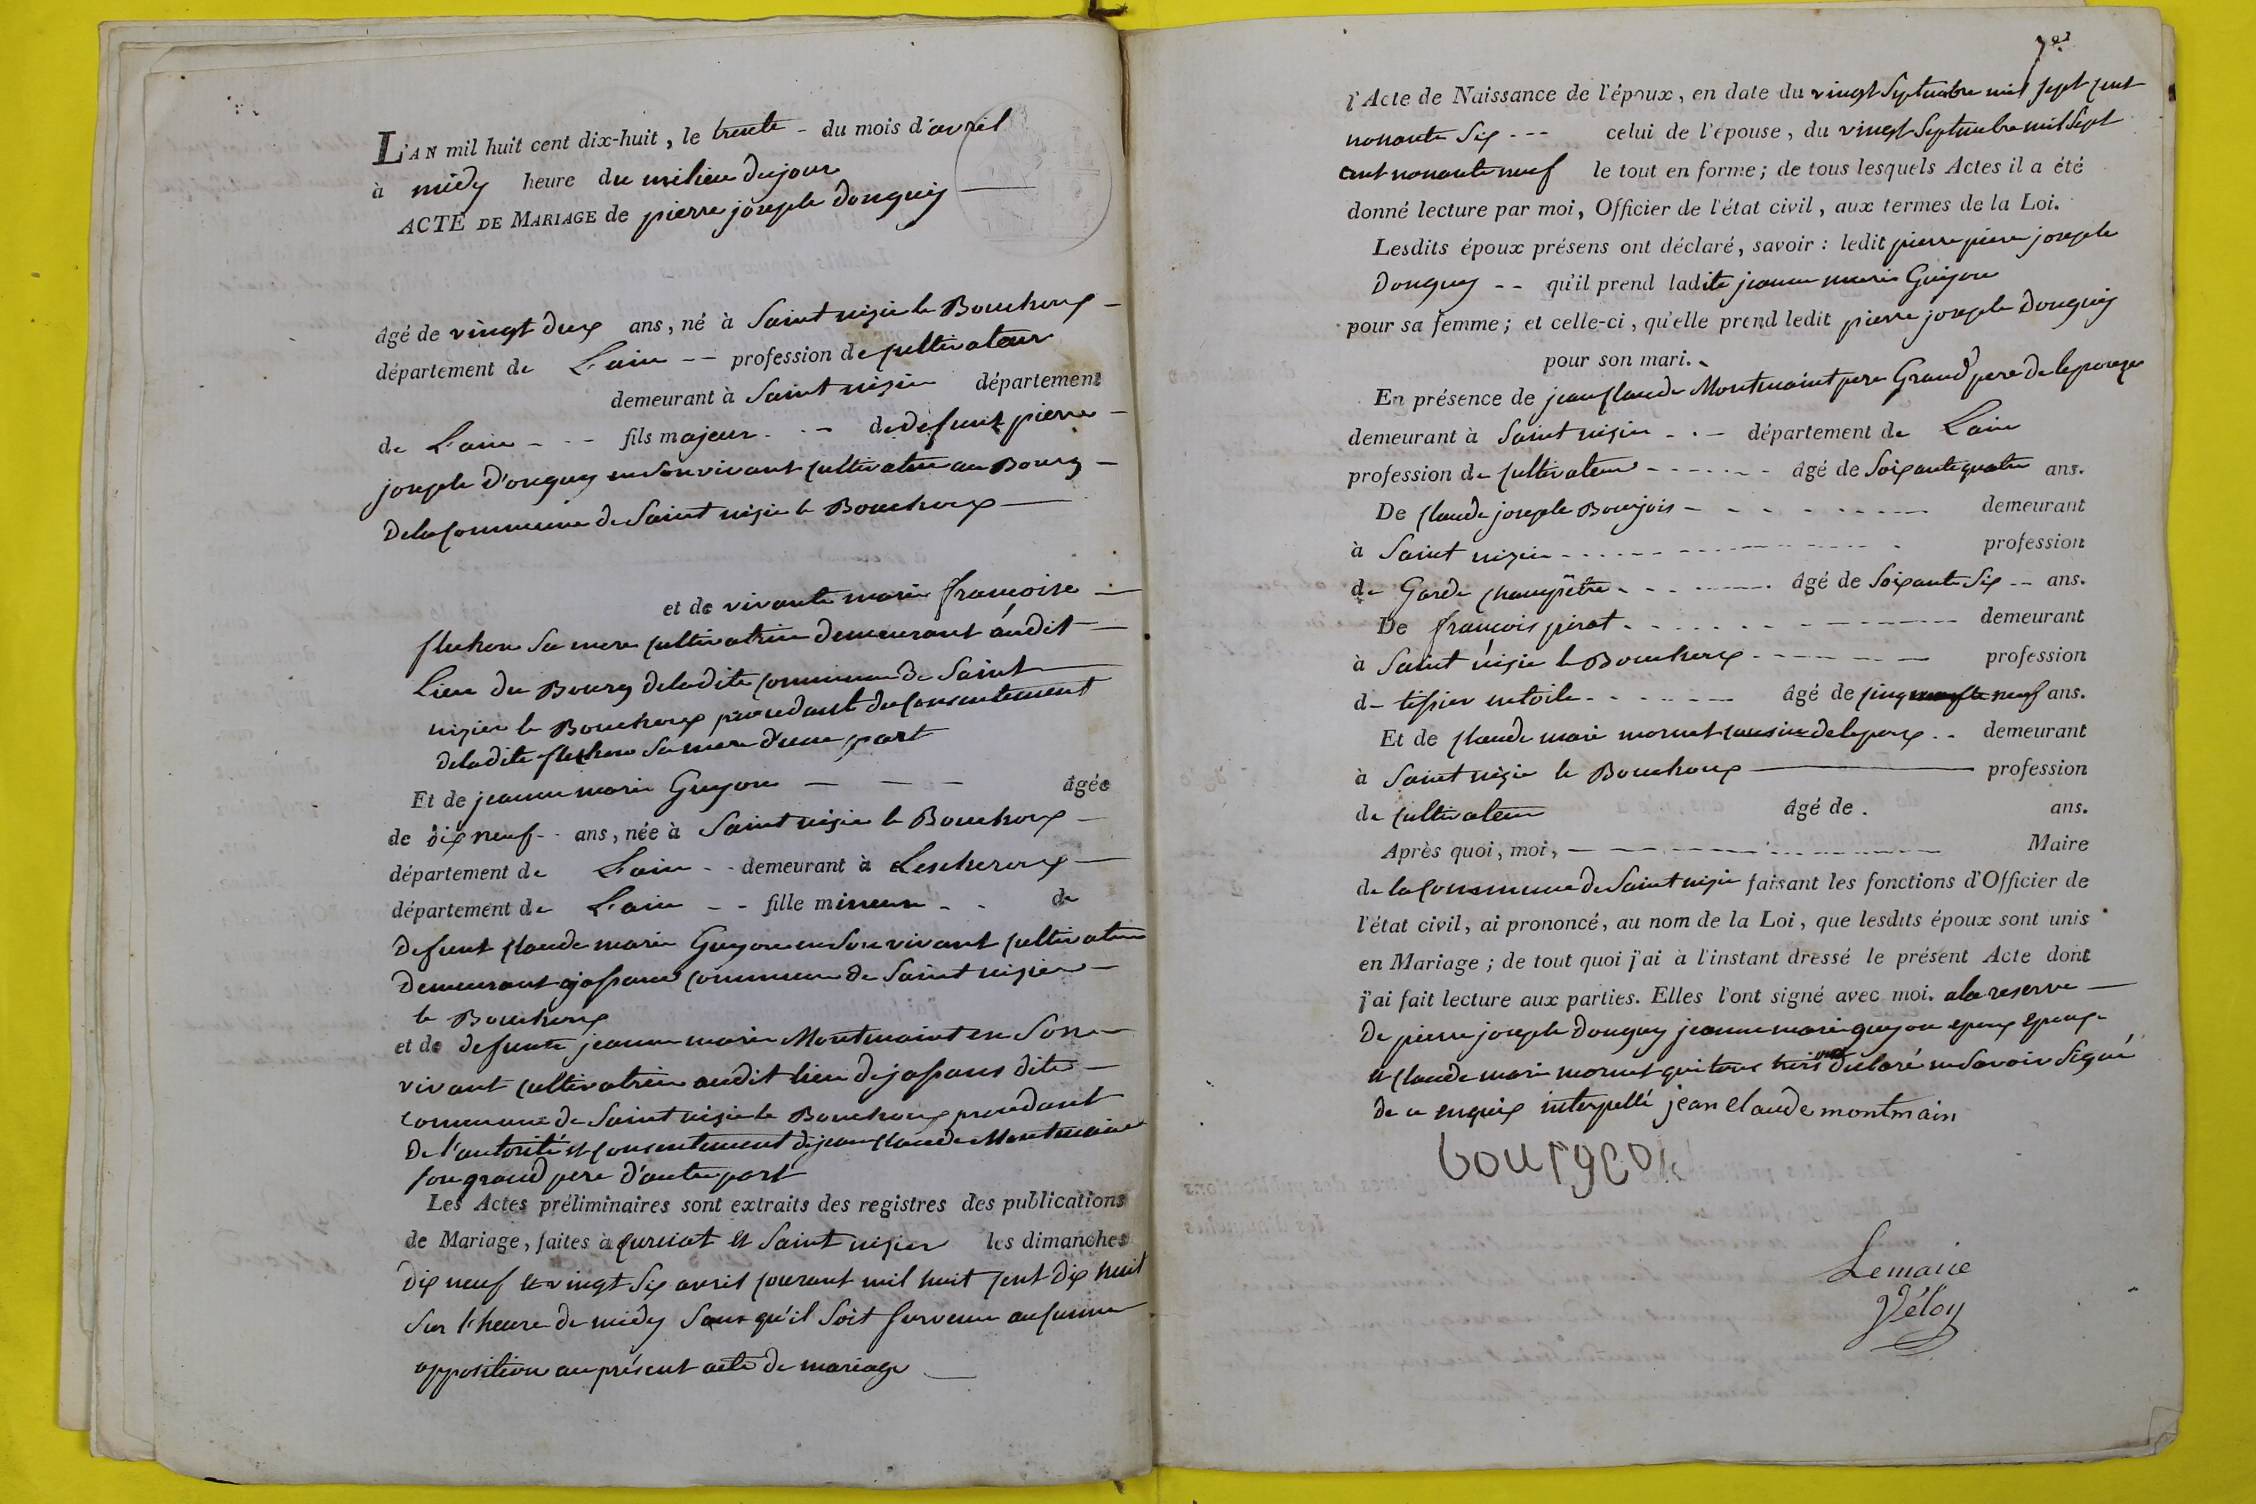 L'AN mil huit cent dix-huit, le trente - du mois d'avril
à midy heure du milieu du jour
ACTE DE MARIAGE de pierre joseph Donguy
âgé de vingt deux ans, né à Saint nizier le Bouchoux -
département de L'ain -- profession de cultivateur
demeurant à Saint nizier département
de L'ain - - - fils majeur - . - de defunt pierre -
joseph D'onguy en Son vivant cultivateur au Bourg -
De la Commune de Saint nizie le Bouchoux -
et de vivante marie françoise -
flechon Sa mere cultivatrice demeurant audit -
Lieu du Bourg de la dite commune de Saint
nizier le Bouchoux procedant du Consentement
de la dite flechon Sa mere d'une part
Et de jeanne marie Guyon - - - âgée
de dix neuf - - ans, née à Saint nizie le Bouchoux -
département de L'ain - - demeurant à Lescheroux -
département de L'ain - - fille mineure - - de
Defunt claude marie Guyon en Son vivant cultivateur
Demeurant a jassans commune de Saint nizier -
le Bouchoux
et de defunte jeanne marie Montmaint en Son -
vivant cultivatrice audit lieu de jassans dite -
commune de Saint nizie le Bouchoux procedant
De l'autorité et consentement de jean claude Montmaint
son grand pere d'autre part
Les Actes préliminaires sont extraits des registres des publications
de Mariage, faites à Curciat et Saint nizier les dimanches
Dix neuf et vingt Six avril courant mil huit cent Dix huit
Sur l'heure de midy Sans qu'il Soit Survenu aucune
opposition au présent acte de mariage -
l'Acte de Naissance de l'époux, en date du vingt Septembre mil sept cent
nonante Six - - - celui de l'épouse, du vingt Septembre mil Sept
cent nonante neuf le tout en forme; de tous lesquels Actes il a été
donné lecture par moi, Officier de l'état civil, aux termes de la Loi.
Lesdits époux présens ont déclaré, savoir: ledit pierre pierre joseph
Donguy -- qu'il prend ladite jeanne marie Guyon
pour sa femme; et celle-ci, qu'elle prend ledit pierre joseph Donguy
pour son mari.
En présence de jean claude Montmaint pere Grand pere de lepouze
demeurant à Saint nizier - . - département de L'ain
profession de cultivateur - - - - - - âgé de Soixante quatre ans.
De claude joseph Bourjois - - - - - - - demeurant
à Saint nizier - - - - - - - profession
de Garde champêtre - - - - - âgé de Soixante Six -- ans.
De françois pirat - - - - - - - demeurant
à Saint nizie le Bouchoux - - - - - profession
de tissier en toile - - - - - - âgé de cinquante neuf ans.
Et de claude marie mornet cousin de lepoux - - demeurant
à Saint nizie le Bouchoux - profession
de cultivateur âgé de . ans.
Après quoi, moi, - - - - - - Maire
de la Commune de Saint nizie faisant les fonctions d'Officier de
l'état civil, ai prononcé, au nom de la Loi, que lesdits époux sont unis
en Mariage; de tout quoi j'ai à l'instant dressé le présent Acte dont
j'ai fait lecture aux parties. Elles l'ont signé avec moi. a la reserve -
De pierre joseph Donguy jeanne marie guyon epoux epouze
et claude marie mornet qui tous trois ont Declaré ne Savoir Signé
de ce enquis interpellé jean claude montmain
bourgeois
Lemaire
Véloy